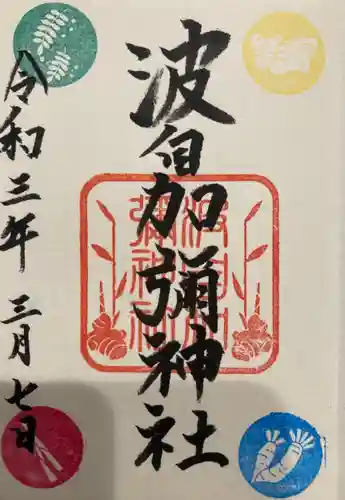 波自加彌神社
令和三年 三月七日